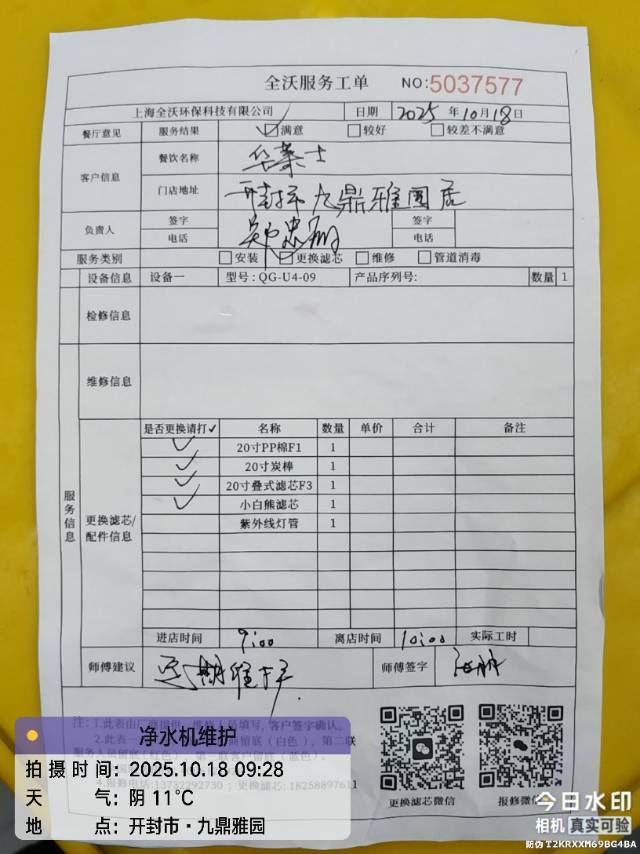 全沃服务工单 NO:5037577
上海全沃环保科技有限公司 日期 2025 年 10 月 18 日
餐厅意见 服务结果 ☑满意 □较好 □较差不满意
客户信息 餐饮名称 华莱士
门店地址 开封市九鼎雅园店
负责人 签字 签字
电话 电话
服务类别 □安装 ☑更换滤芯 □维修 □管道消毒
设备信息 设备一 型号: QG-U4-09 产品序列号: 数量 1
检修信息
维修信息
服务信息
更换滤芯/配件信息
是否更换请打✓ 名称 数量 单价 合计 备注
✓ 20寸PP棉F1 1
✓ 20寸炭棒 1
✓ 20寸叠式滤芯F3 1
✓ 小白熊滤芯 1
紫外线灯管 1
进店时间 9:00 离店时间 10:00 实际工时
师傅建议 定期维护 师傅签字
注: 1.此表由 填写, 客户签字确认。
2.此表一 留底(白色)、第二联
服务人员留底(红色)、第三联客户留底(蓝色)。
报修电话:13732292730 ; 更换滤芯: 18258897611
更换滤芯微信 报修微信
净水机维护
拍摄时间: 2025.10.18 09:28
天 气: 阴 11℃
地 点: 开封市·九鼎雅园
今日水印
相机 真实可验
防伪 T2KRXXM69BG4BA